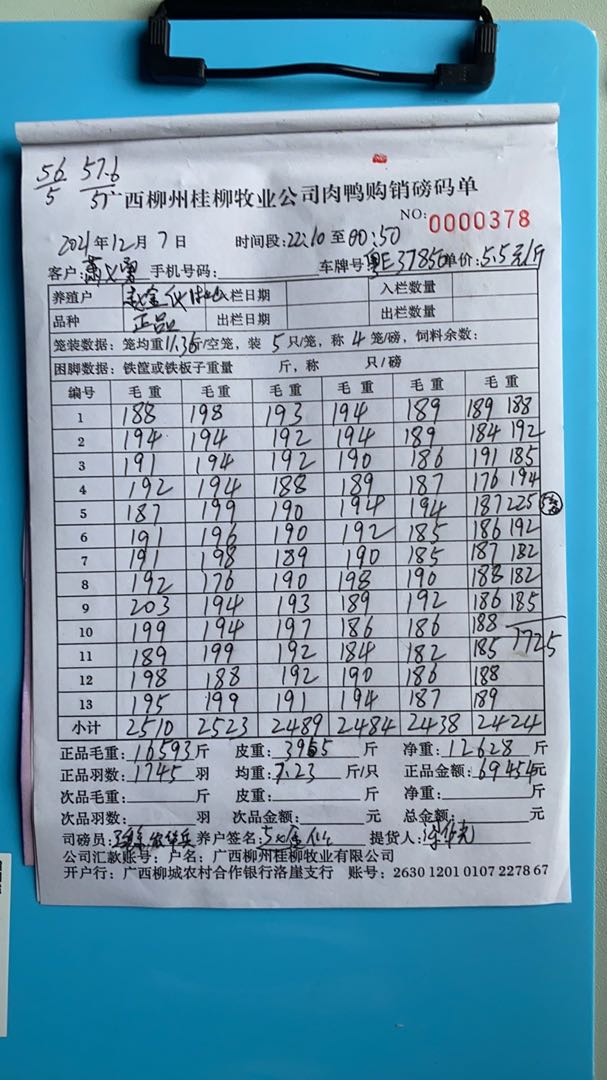 56 57.6
5 57
广西柳州桂柳牧业公司肉鸭购销磅码单
NO: 0000378
2021年12月7日 时间段:22:10至00:50
客户: 手机号码: 车牌号粤E37850单价:5.5元/斤
养殖户 入栏日期 入栏数量
品种 正品 出栏日期 出栏数量
笼装数据: 笼均重11.36斤/空笼, 装5只/笼, 称4笼/磅, 饲料余数:
困脚数据: 铁筐或铁板子重量 斤, 称 只/磅
编号 毛重 毛重 毛重 毛重 毛重 毛重
1 188 198 193 194 189 189 188
2 194 194 192 194 189 184 192
3 191 194 192 190 186 191 185
4 192 194 188 189 187 176 194
5 187 199 190 194 194 187 225
6 191 196 190 192 185 186 192
7 191 198 189 190 185 187 182
8 192 176 190 198 190 188 182
9 203 194 193 189 192 186 185
10 199 194 197 186 186 188
11 189 199 192 184 182 185 1725
12 198 188 192 190 186 188
13 195 199 191 194 187 189
小计 2510 2523 2489 2484 2438 2424
正品毛重: 16593斤 皮重: 3965斤 净重: 12628斤
正品羽数: 1745羽 均重: 7.23斤/只 正品金额: 69454元
次品毛重: 斤 皮重: 斤 净重: 斤
次品羽数: 羽 次品金额: 元 总金额: 元
司磅员: 养户签名: 提货人:
公司汇款账号: 户名: 广西柳州桂柳牧业有限公司
开户行: 广西柳城农村合作银行洛崖支行 账号: 2630 1201 0107 2278 67